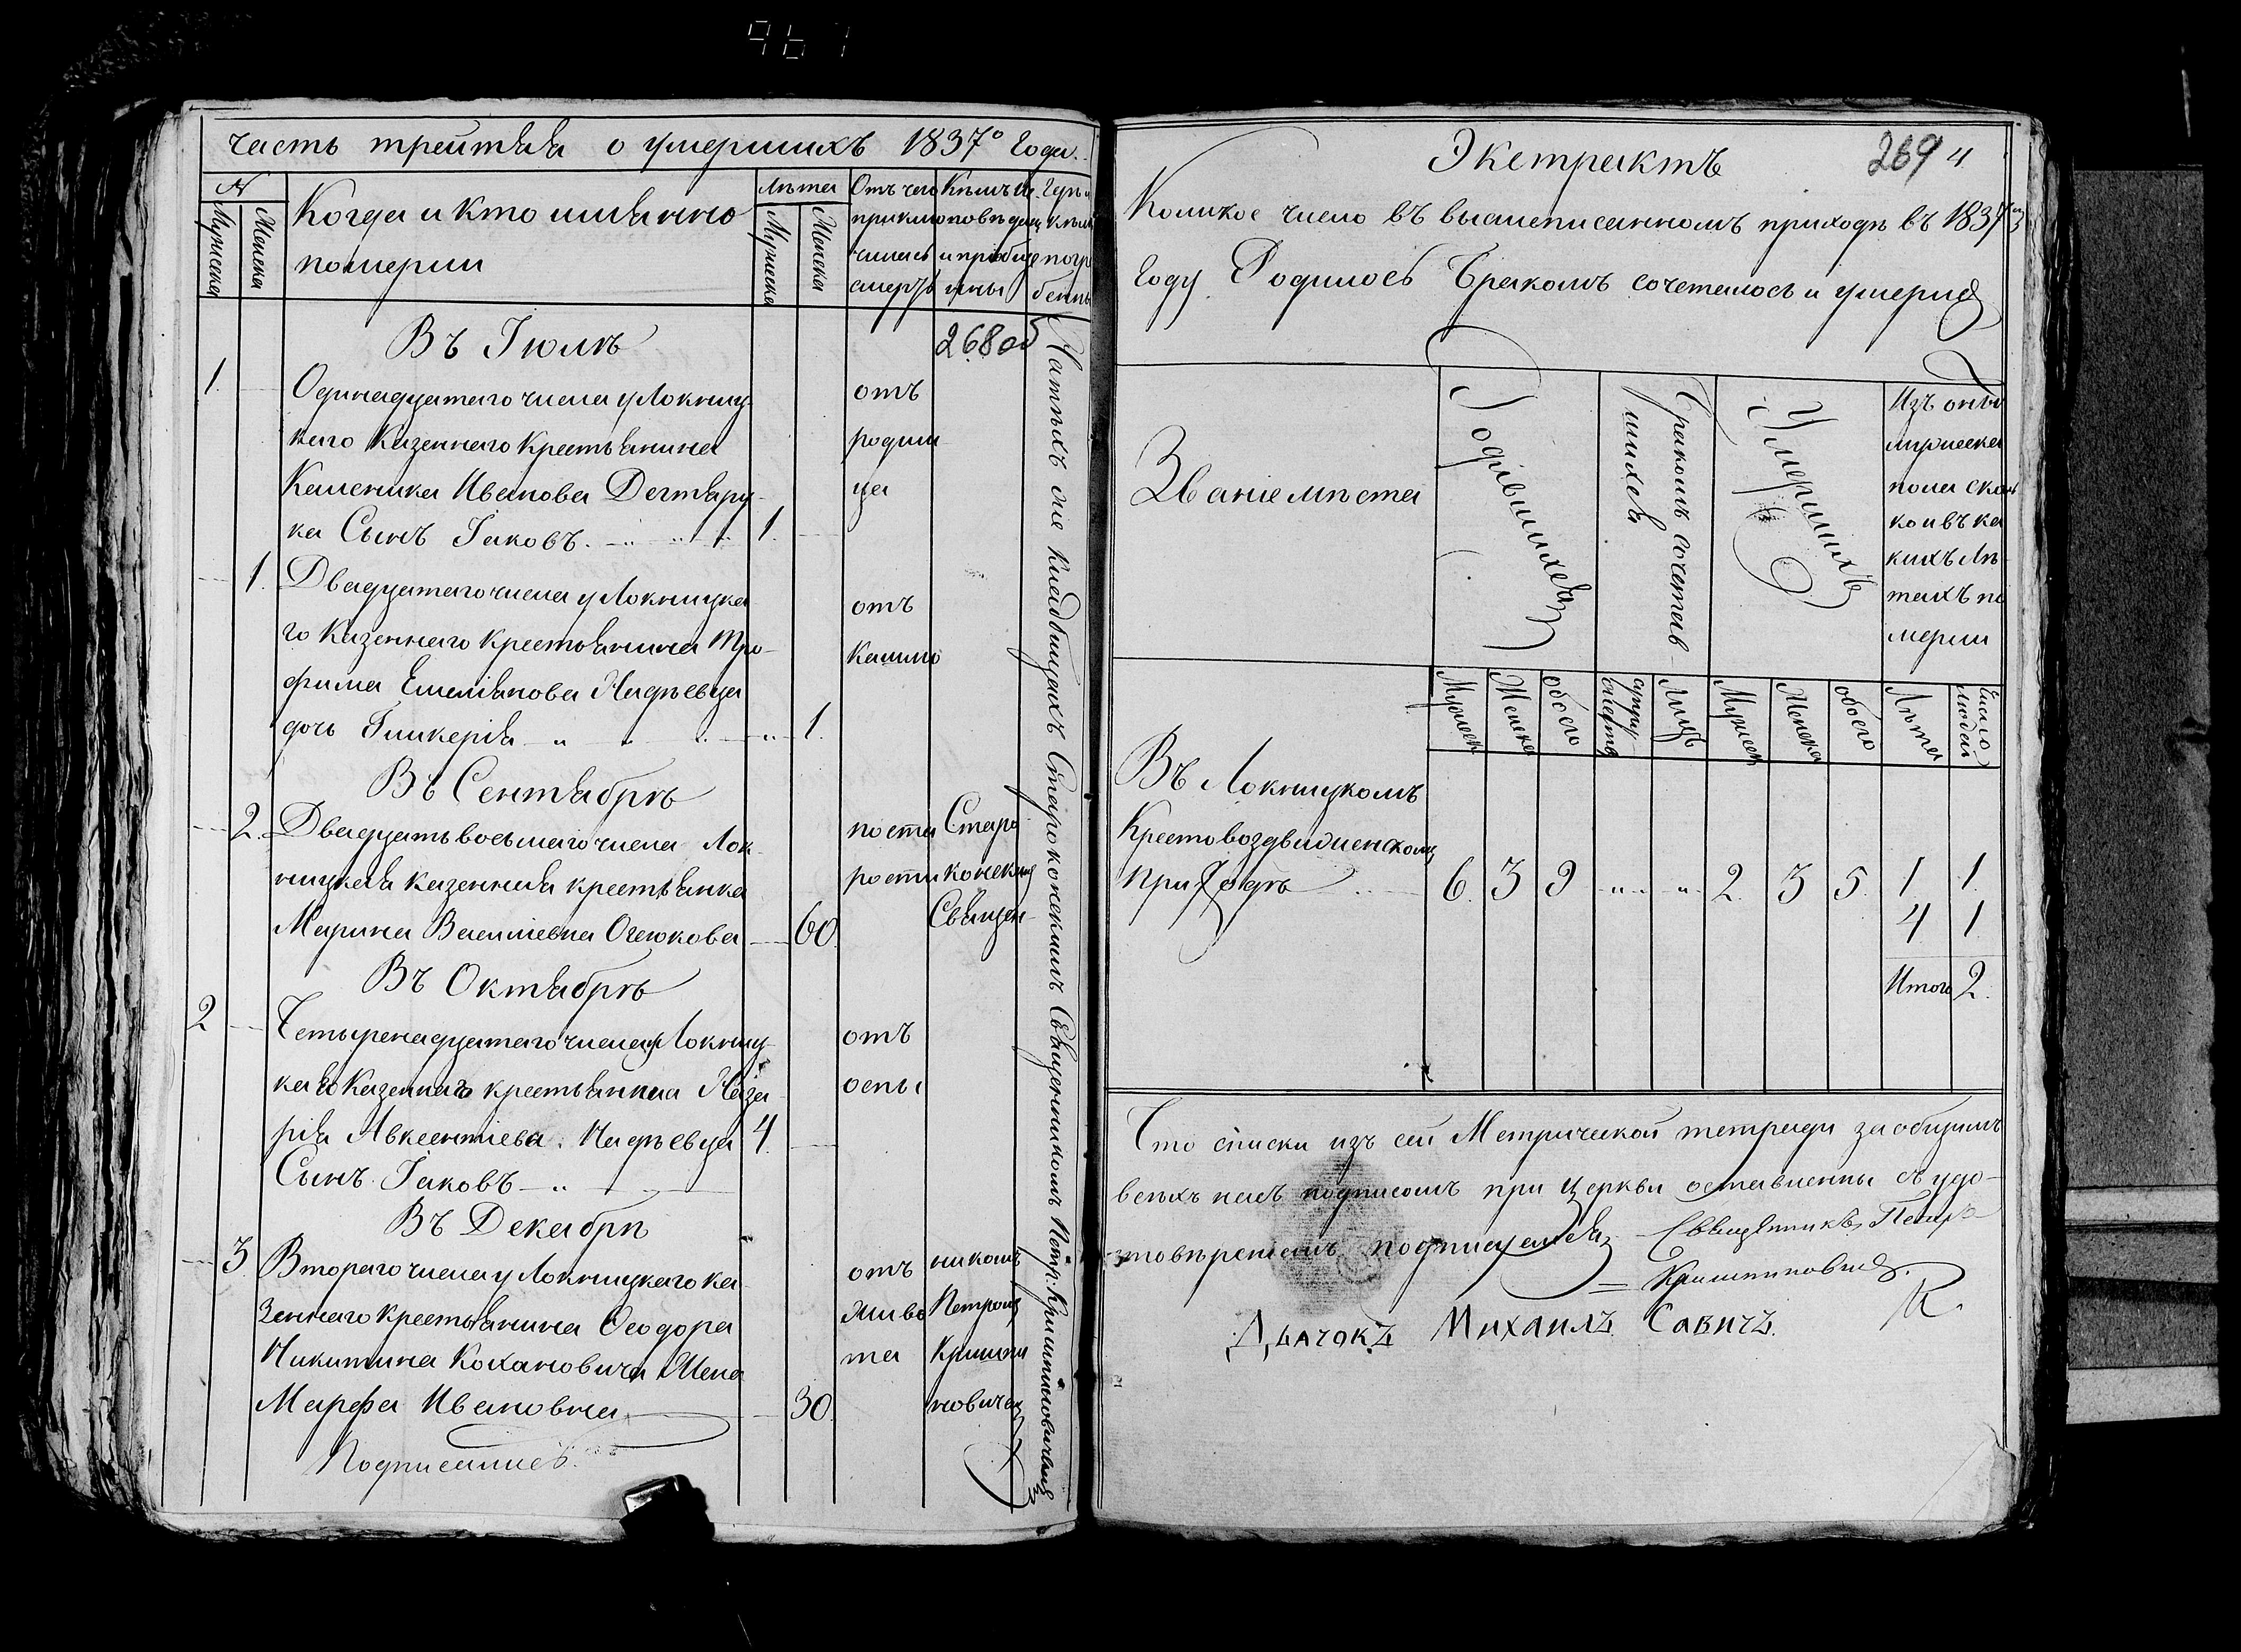 967
часть трейтяя о умершихъ 1837º Года.
№
Мужеска
Женска
Когда и кто имянно
померли
лѣта
Мужеска
Женска
Отъ чего
приклю
чилась
смерть
Кѣмъ Ис
повѣдан
и пріобще
ины
Гдѣ и
кѣмъ
погр
бенны
Въ Іюлѣ
268об
1.
Одинадцатаго числа у Локниц-
каго Казеннаго Крестьянина
Каленика Иванова Дегтяру-
ка Сынъ Іаковъ.
1.
отъ
родим
ца
1.
Двадцатаго числа у Локницка
го Казеннаго Крестьянина Тро-
фима Емеліянова Надѣевца
дочь Гликерія
1.
отъ
Кашлю
Въ Сентябрѣ
2.
Двадцать восьмаго числа Лок-
ницкая казенная крестьянка
Марина Василіевна Огеюкова
60
по ста
рости
Старо
конским
Священ-
Въ Октябрѣ
2
Четыренадцатаго числа у Локниц-
каго Казеннаго крестьянина Наза
рія Авксентіева Надѣевца
Сынъ Іаковъ
4.
отъ
оспы
Въ Декабрѣ
3
Втораго числа у Локницкаго Ка-
зеннаго Крестьянина Ѳеодора
Никитина Кохановича Жена
Марфа Ивановна
30.
отъ
живо
та
никомъ
Петром
Криштя
новичем
На тѣхъ же кладбищахъ Староконскимъ Священникомъ Петр: Криштяновичемъ
Подписались
Экстрактъ
269 4
Коликое число въ вышеписанномъ приходѣ въ 1837м
Году Родилось Бракомъ сочеталось и умерло
Званіе мѣста
Родившихся
Бракомъ сочетав
шихся
Умершихъ
Изъ оныхъ
мужеска
пола сколь
ко и въ ка
кихъ лѣ-
тахъ по
мерли
Мужеск
Женска
обоего
супру-
жествъ
Лицъ
Мужеск
Женска
обоего
Лѣта
Число
людей
Въ Локницкомъ
Крестовоздвиженском
приходѣ
6. 3 9 2. 3 5. 1 1.
4 1
Итого 2.
Что списки изъ сей Метрической тетради за общимъ
всѣхъ насъ подписомъ при Церкви оставленны съ удо-
стовѣреніемъ подписуемся Священникъ Петръ
Криштяновичъ
Дьячокъ Михаилъ Савичъ.